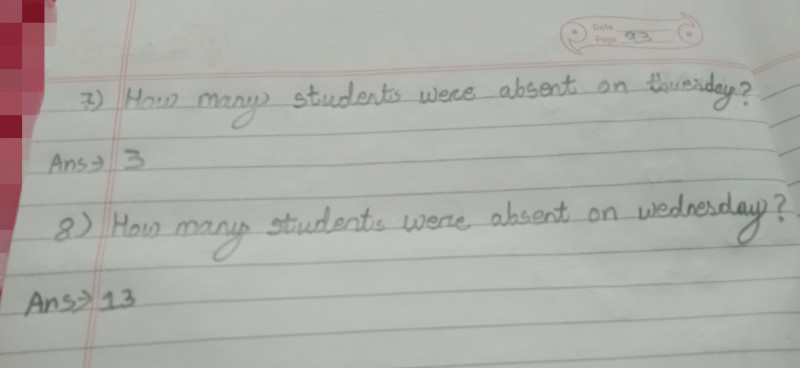 Date
Page 93
7) How many students were absent on thuesday?
Ans→ 3
8) How many students were absent on wednesday?
Ans→ 13